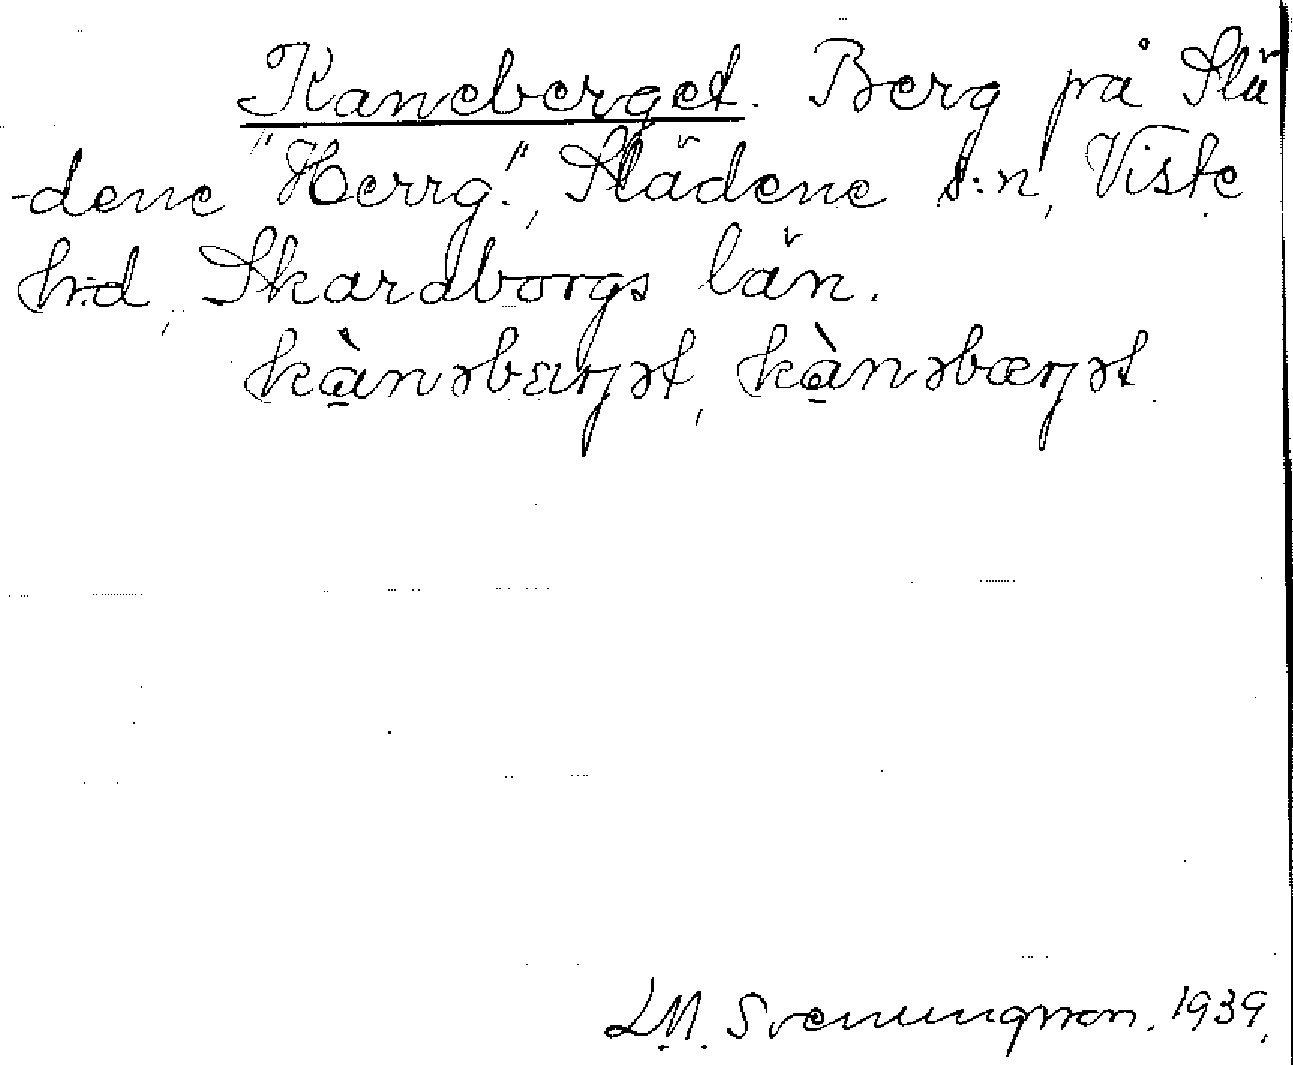 Kaneberget. Berg på Slä
-dene "Herrg.", Slädene s:n, Viste
h:d, Skaraborgs län.
kànəbærjət, kànəbærjət
L.M. Svenungsson. 1939.